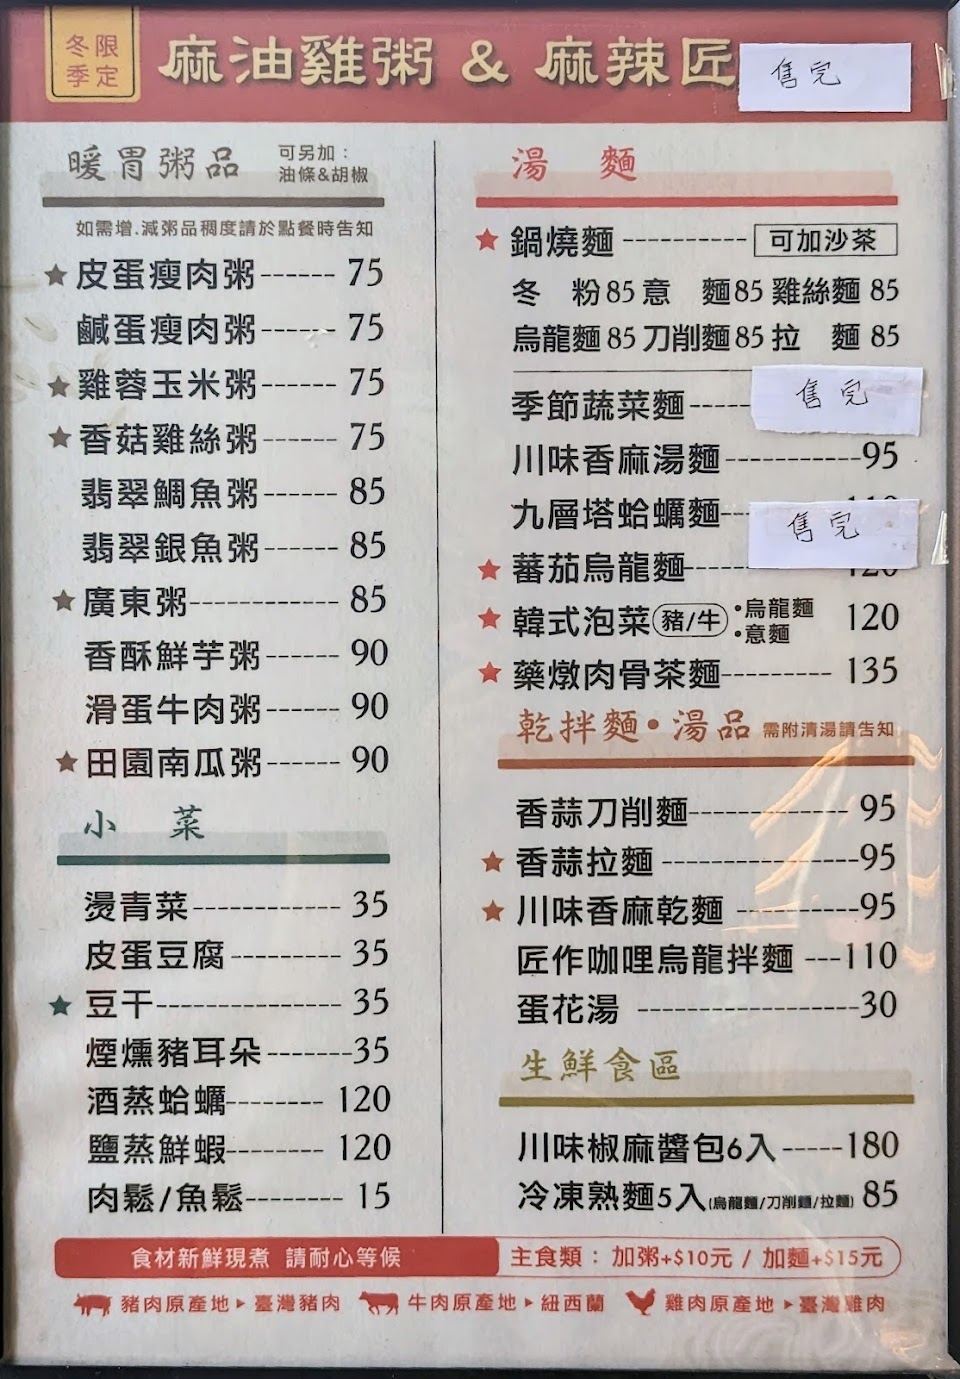 冬限
季定
麻油雞粥 & 麻辣匠
售完
暖胃粥品
可另加：
油條&胡椒
如需增.減粥品稠度請於點餐時告知
★皮蛋瘦肉粥------ 75
鹹蛋瘦肉粥------ 75
★雞蓉玉米粥------ 75
★香菇雞絲粥------ 75
翡翠鯛魚粥------ 85
翡翠銀魚粥------ 85
★廣東粥------------ 85
香酥鮮芋粥------ 90
滑蛋牛肉粥------ 90
★田園南瓜粥------ 90
小 菜
燙青菜------------ 35
皮蛋豆腐--------- 35
★豆干--------------- 35
煙燻豬耳朵-------35
酒蒸蛤蠣-------- 120
鹽蒸鮮蝦-------- 120
肉鬆/魚鬆-------- 15
湯 麵
★鍋燒麵---------- 可加沙茶
冬 粉 85 意 麵 85 雞絲麵 85
烏龍麵 85 刀削麵 85 拉 麵 85
季節蔬菜麵----
售完
川味香麻湯麵-----------95
九層塔蛤蠣麵--
售完
★蕃茄烏龍麵---- 120
★韓式泡菜(豬/牛) •烏龍麵 120
•意麵
★藥燉肉骨茶麵--------- 135
乾拌麵•湯品 需附清湯請告知
香蒜刀削麵------------- 95
★香蒜拉麵 ----------------95
★川味香麻乾麵 -----------95
匠作咖哩烏龍拌麵 ---110
蛋花湯 ------------------30
生鮮食區
川味椒麻醬包6入-----180
冷凍熟麵5入(烏龍麵/刀削麵/拉麵) 85
食材新鮮現煮 請耐心等候
主食類：加粥+$10元 / 加麵+$15元
豬肉原產地▸臺灣豬肉 牛肉原產地▸紐西蘭 雞肉原產地▸臺灣雞肉